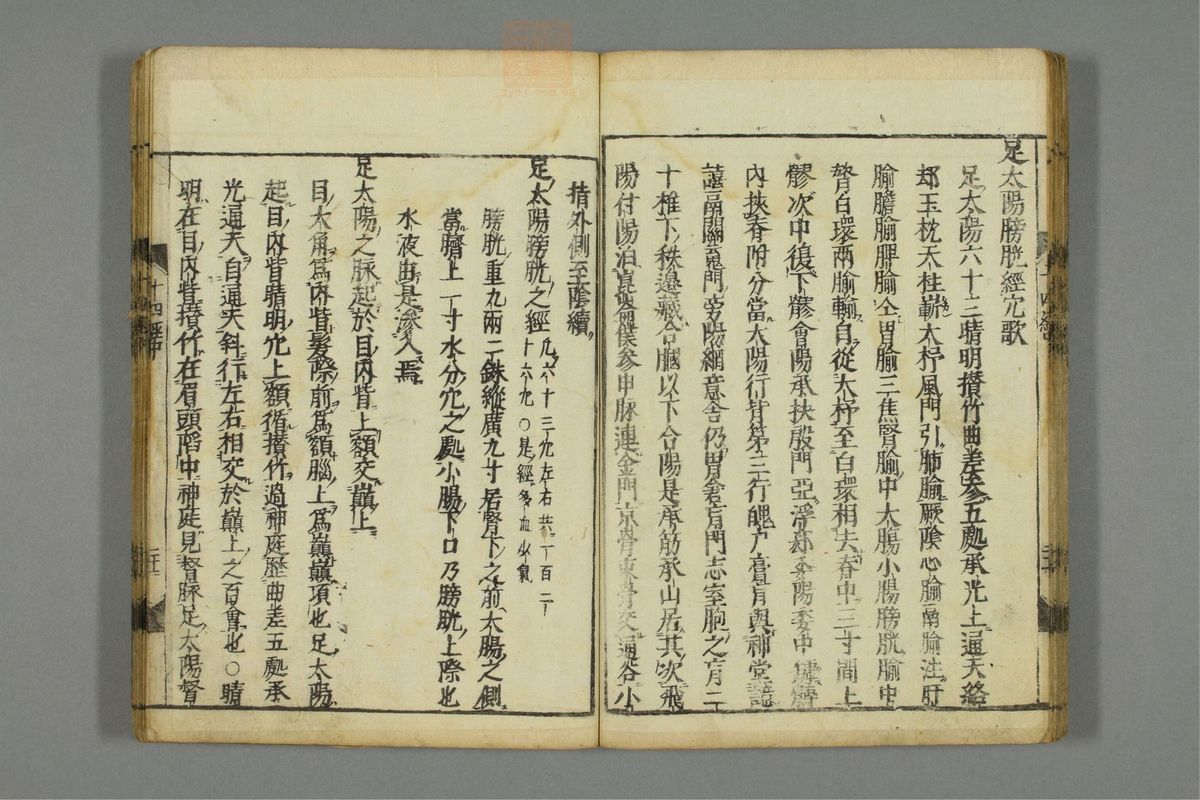 足太陽膀胱經穴歌
足太陽六十三睛明攢竹曲差參五處承光上通天絡
却玉枕天柱嶄太杼風門引肺腧厥陰心腧膈腧注肝
腧膽腧脾腧仝胃腧三焦腎腧中大腸小腸膀胱腧中
膂白環兩腧輸自從大杼至白環相去脊中二寸間上
髎次中復下髎會陽承扶殷門亞浮郄委陽委中
內挾脊附分當太陽行背第三行魄户膏肓與神堂譩
譆膈關魂門旁陽綱意舍仍胃倉肓門志室胞之肓二
十椎下秩邊藏合膕以下合陽是承筋承山居其次飛
陽付陽泊崑崙僕參申脉連金門京骨束骨交通谷小
指外側至陰續
足太陽膀胱之經 凡六十三穴左右共一百二十六穴○是經多血少氣
膀胱重九兩二銖縱廣九寸居腎下之前大腸之側
當臍上一寸水分穴之處小腸下口乃膀胱上際也
水液由是滲入焉
足太陽之脉起於目內眥上額交巔上
目大角爲內眥髮際前爲額腦上爲巔巔頂也足太陽
起目內眥睛明穴上額循攢竹過神庭歷曲差五處承
光通天自通天斜行左右相交於巔上之百會也○睛
明在目內眥攢竹在眉頭陷中神庭見督脉足太陽督
十四經中